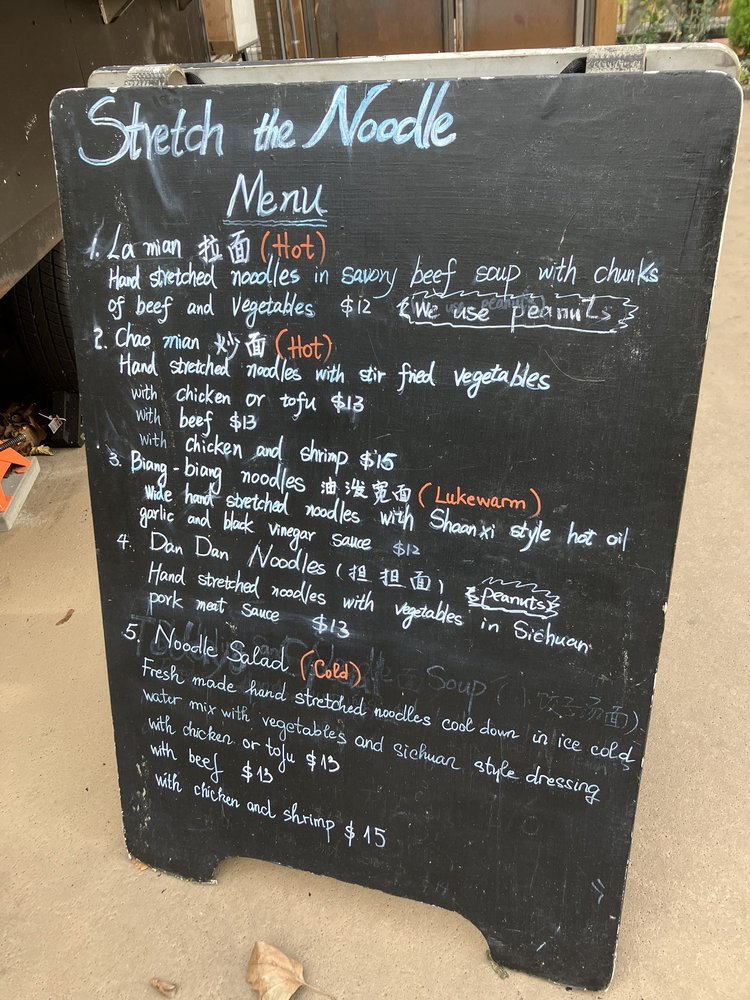 Stretch the Noodle
Menu
1. La mian 拉面 (Hot)
Hand stretched noodles in savory beef soup with chunks
of beef and Vegetables $12 We use peanuts
2. Chao mian 炒面 (Hot)
Hand stretched noodles with stir fried vegetables
with chicken or tofu $13
with beef $13
with chicken and shrimp $15
3. Biang-biang noodles 油泼宽面 (Lukewarm)
Wide hand stretched noodles with Shaanxi style hot oil
garlic and black vinegar sauce $12
4. Dan Dan Noodles (担担面) peanuts
Hand stretched noodles with vegetables in Sichuan
pork meat sauce $13
5. Noodle Salad (Cold)
Soup
Fresh made hand stretched noodles cool down in ice cold
water mix with vegetables and sichuan style dressing
with chicken or tofu $13
with beef $13
with chicken and shrimp $15